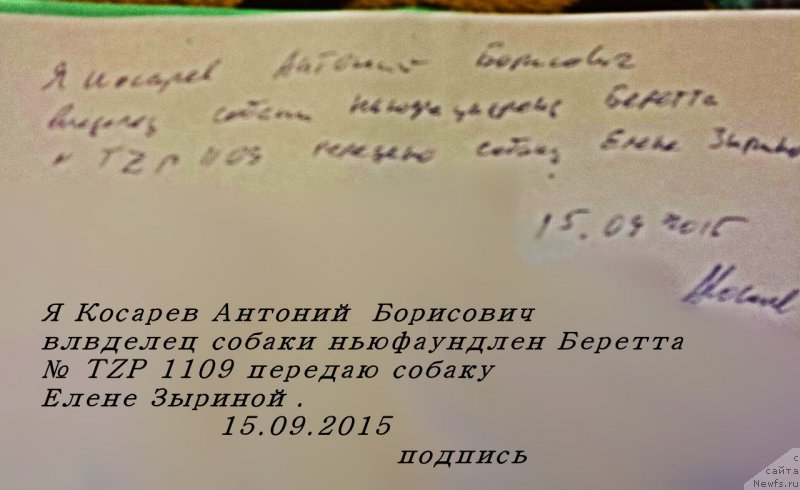 Я Косарев Антоний Борисович
владелец собаки ньюфаундленд Беретта
№ TZP 1109 передаю собаку Елене Зыриной
15.09 2015
Я Косарев Антоний Борисович
влвделец собаки ньюфаундлен Беретта
№ TZP 1109 передаю собаку
Елене Зыриной .
15.09.2015
подпись
с
сайта
Newfs.ru